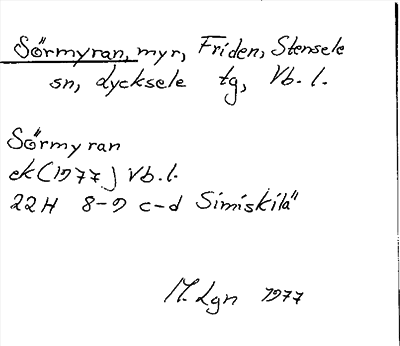 Sörmyran, myr, Friden, Stensele
sn, Lycksele tg, Vb. l.
Sörmyran
ek (1977) Vb. l.
22H 8-9 c-d Simiskilä
M. Lgn 1977